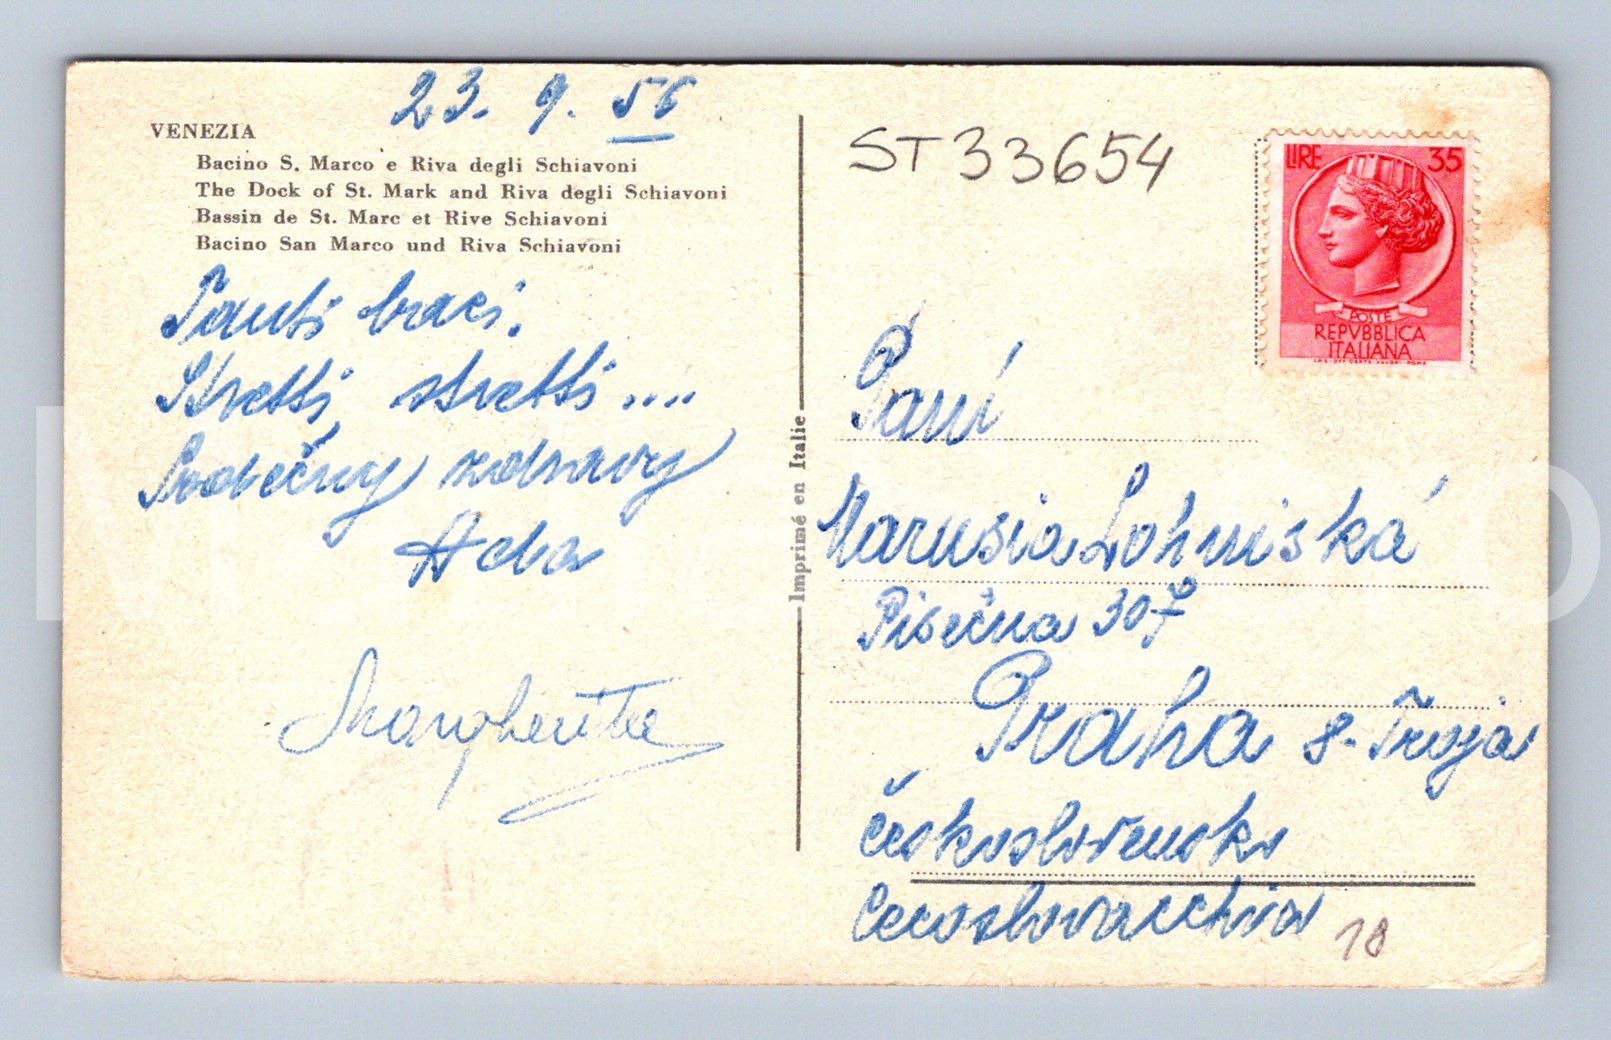 23. 9. 56
VENEZIA
Bacino S. Marco e Riva degli Schiavoni
The Dock of St. Mark and Riva degli Schiavoni
Bassin de St. Marc et Rive Schiavoni
Bacino San Marco und Riva Schiavoni
Tanti baci.
Stretti, stretti....
Srdečný zdravy
Ada
Margherita
Imprimé en Italie
ST33654
LIRE 35
POSTE
REPVBBLICA
ITALIANA
Paní
Marusia Lohniská
Pisečna 307
Praha 8-Troja
Československo
Cecoslovacchia
18